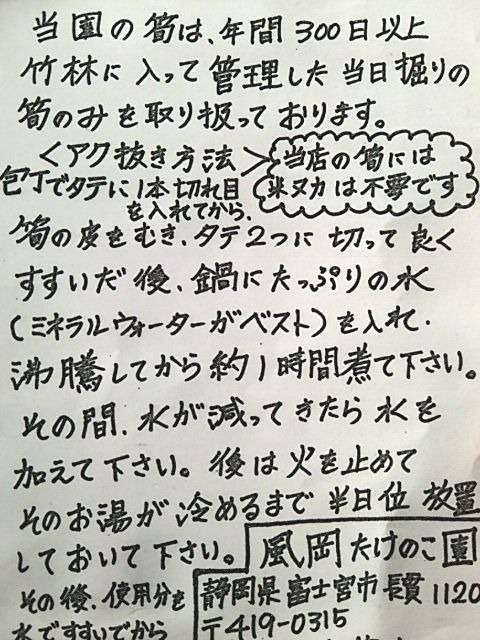 当園の筍は、年間300日以上
竹林に入って管理した当日掘りの
筍のみを取り扱っております。
＜アク抜き方法＞
当店の筍には
米ヌカは不要です
包丁でタテに1本切れ目
を入れてから、
筍の皮をむき、タテ2つに切って良く
すすいだ後、鍋にたっぷりの水
(ミネラルウォーターがベスト)を入れ、
沸騰してから約1時間煮て下さい。
その間、水が減ってきたら水を
加えて下さい。後は火を止めて
そのお湯が冷めるまで半日位放置
しておいて下さい。
その後、使用分を
水ですすいでから
風岡たけのこ園
静岡県富士宮市長貫1120
〒419-0315